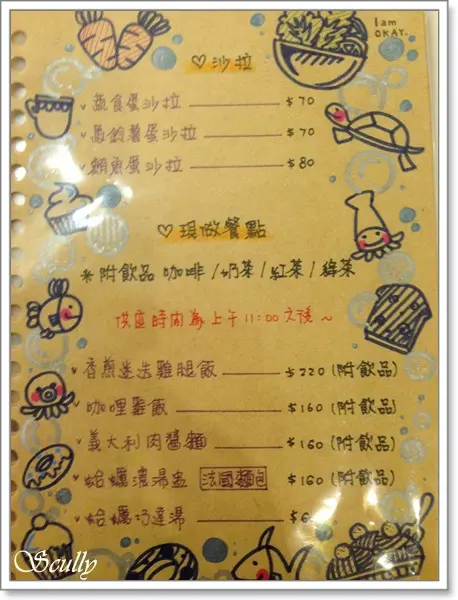 I am
OKAY.
♡沙拉
蔬食蛋沙拉 $70
馬鈴薯蛋沙拉 $70
鮪魚蛋沙拉 $80
♡現做餐點
*附飲品 咖啡/奶茶/紅茶/綠茶
供應時間為上午11:00之後~
香煎迷迭雞腿飯 $220(附飲品)
咖哩雞飯 $160(附飲品)
義大利肉醬麵 $160(附飲品)
蛤蠣濃湯盅 法國麵包 $160(附飲品)
蛤蠣巧達湯
Scully